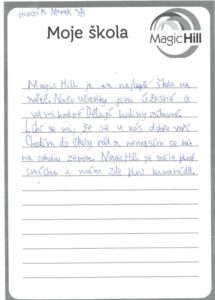 Marek 3B
Moje škola
MagicHill
Magic Hill je ta nejlepší škola na
světě. Naše učitelky jsou úžasné a
velmi hodné. Dělají hodiny zábavné.
Líbí se mi, že se u nás dobře vaří.
Chodím do školy ráda nemusím se bát
na co zeptat. Magic Hill je míle plné
smíchu a mám zde plno kamarádů.